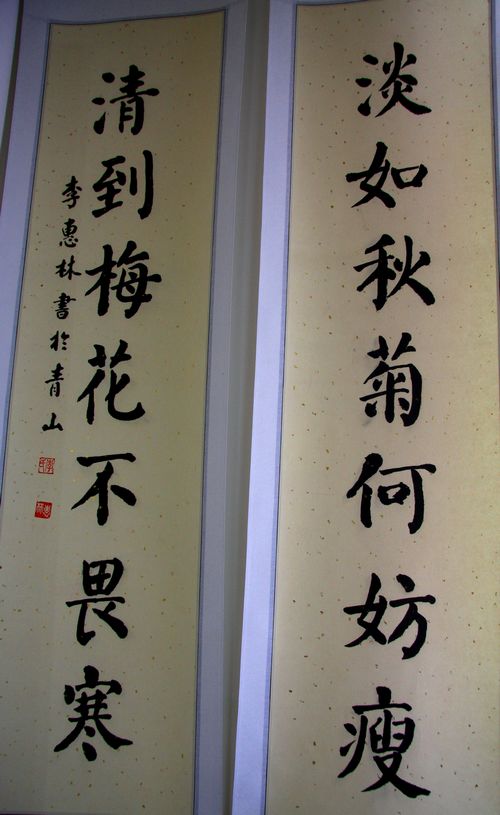 淡如秋菊何妨瘦
清到梅花不畏寒
李惠林書於青山